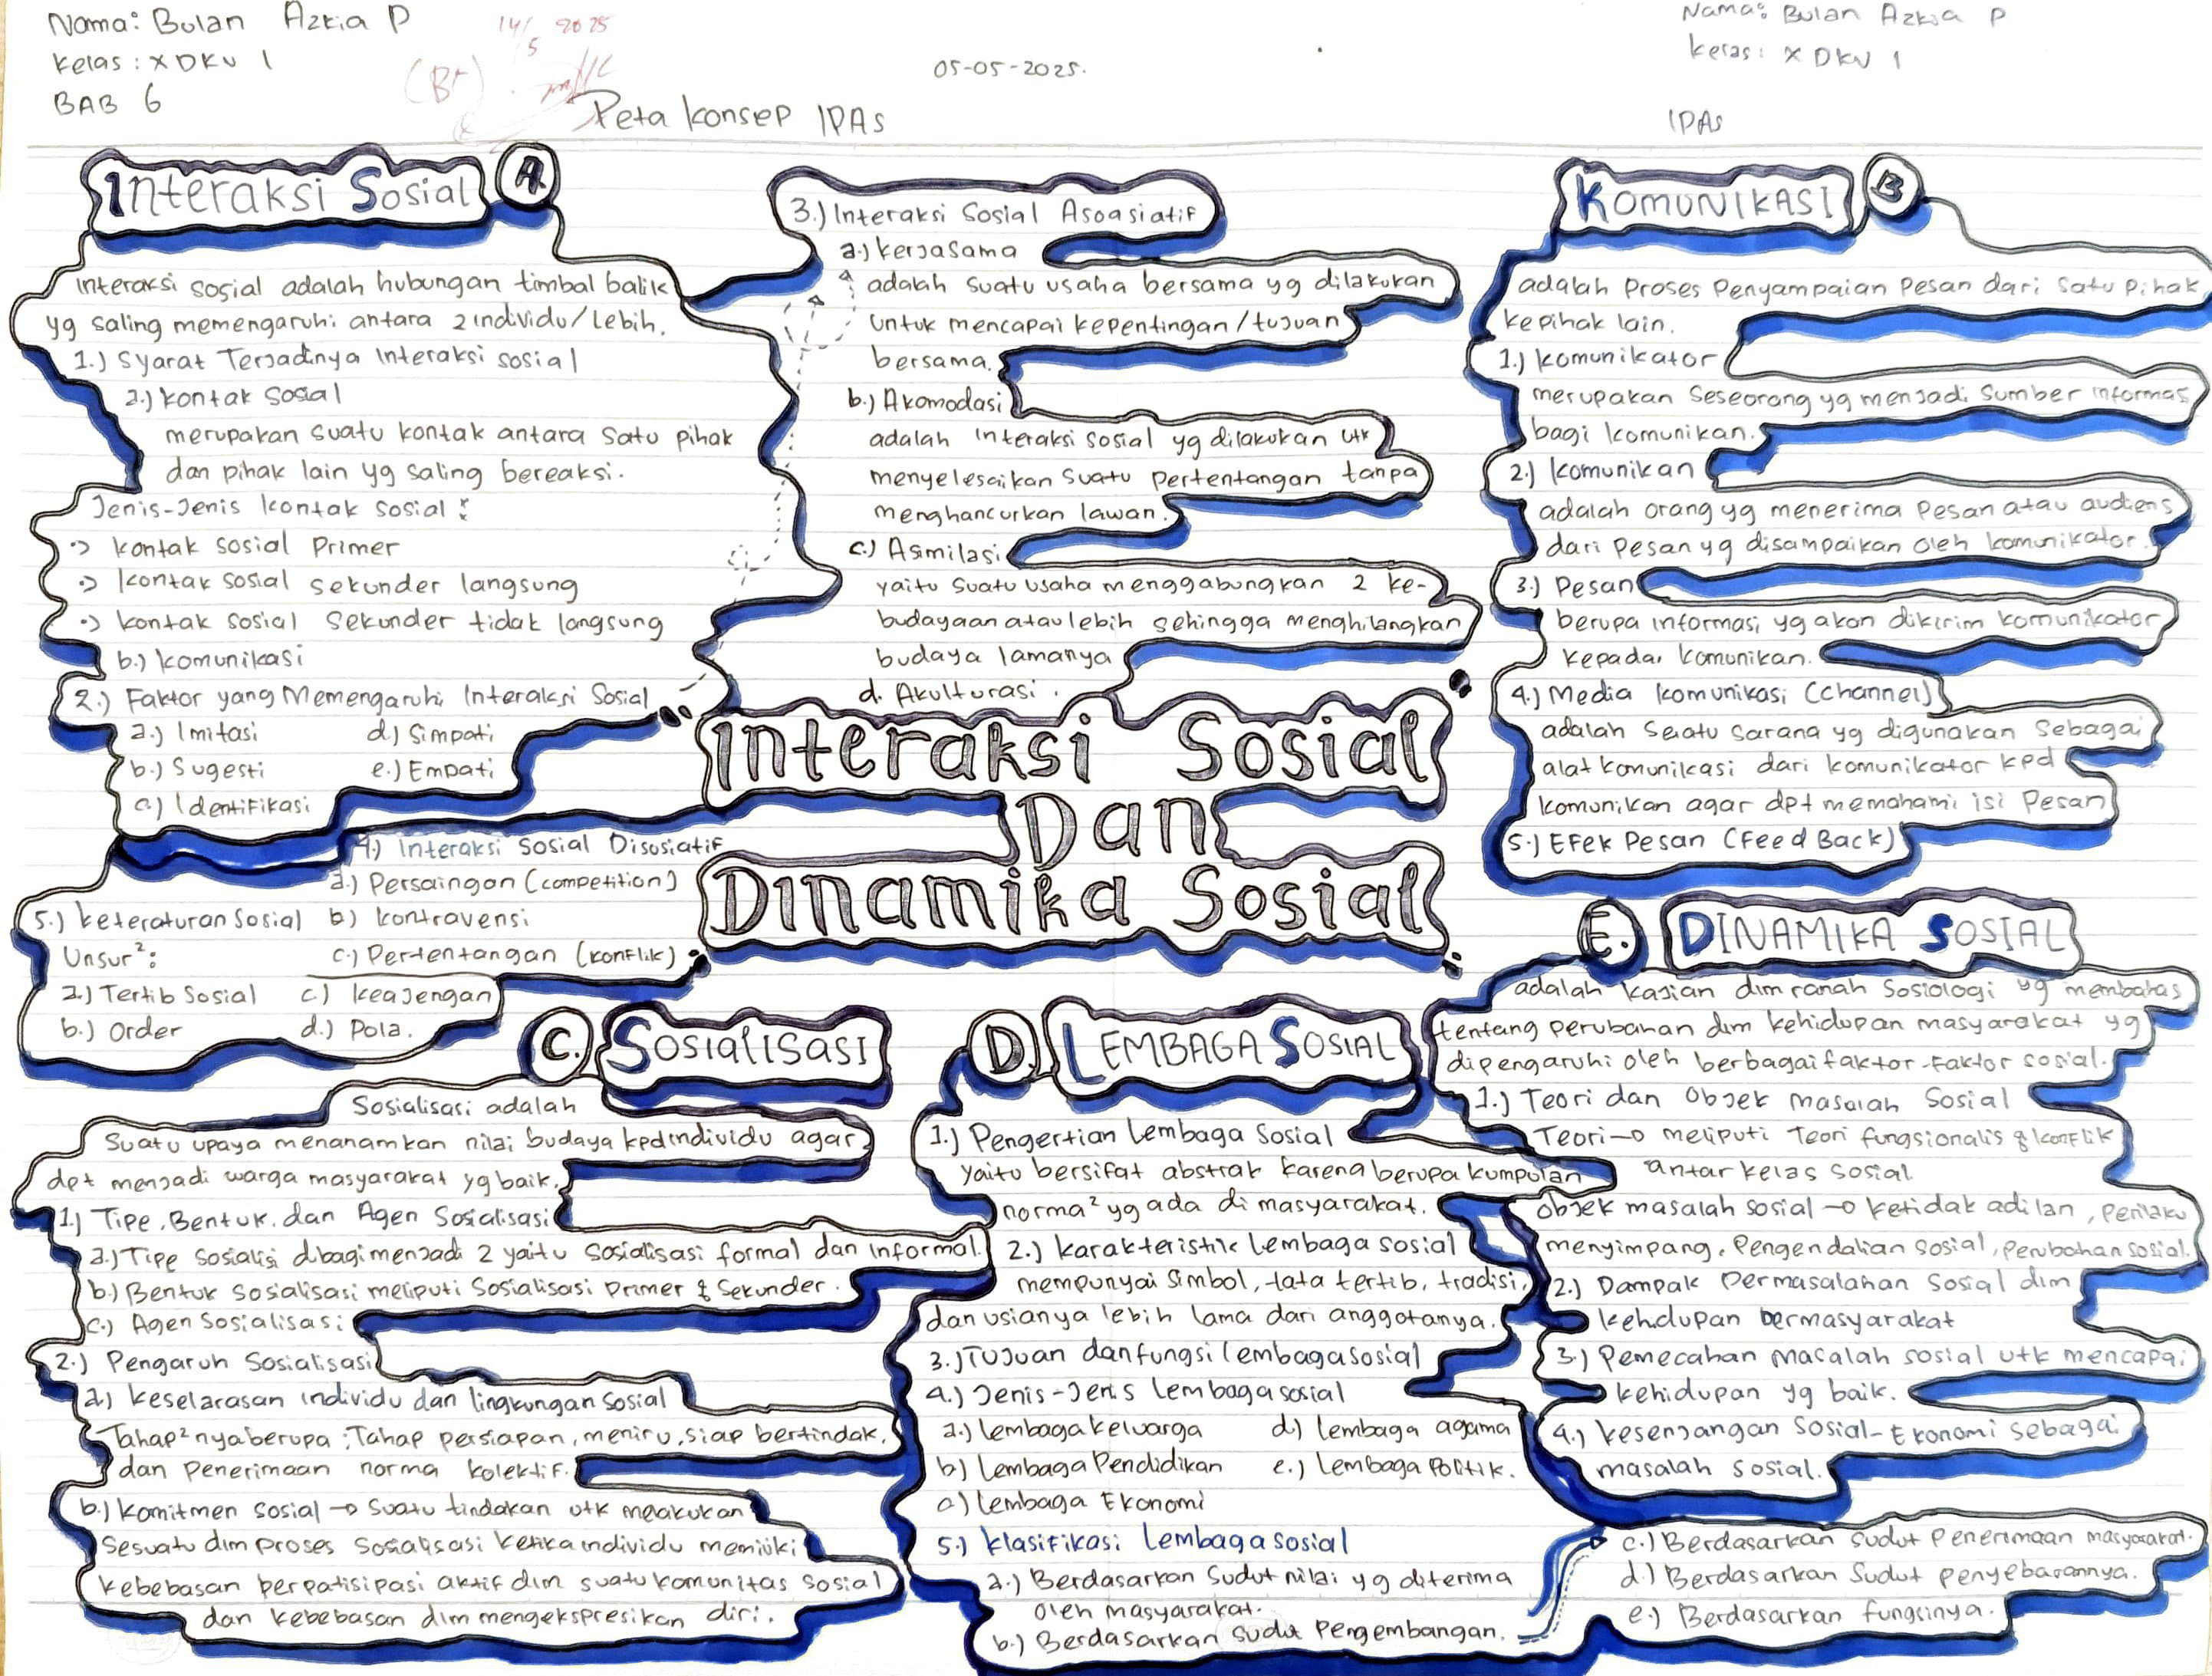 Nama: Bulan Azkia P
Kelas : X DKV 1
BAB 6
(B+)
14/5 2025
05-05-2025.
Peta Konsep IPAS
Nama: Bulan Azkia P
Kelas : X DKV 1
IPAS
Interaksi Sosial A.
Interaksi sosial adalah hubungan timbal balik
yg saling memengaruhi antara 2 individu/lebih.
1.) Syarat Terjadinya Interaksi sosial
a.) Kontak Sosial
merupakan suatu kontak antara satu pihak
dan pihak lain yg saling bereaksi.
Jenis-Jenis Kontak sosial :
•> Kontak sosial Primer
•> Kontak sosial sekunder langsung
•> Kontak sosial sekunder tidak langsung
b.) Komunikasi
2.) Faktor yang Memengaruhi Interaksi Sosial
a.) Imitasi d.) Simpati
b.) Sugesti e.) Empati
c.) Identifikasi
3.) Interaksi Sosial Asoasiatif
a.) Kerjasama
adalah suatu usaha bersama yg dilakukan
untuk mencapai kepentingan/tujuan
bersama.
b.) Akomodasi
adalah interaksi sosial yg dilakukan utk
menyelesaikan suatu pertentangan tanpa
menghancurkan lawan.
c.) Asimilasi
yaitu suatu usaha menggabungkan 2 ke-
budayaan atau lebih sehingga menghilangkan
budaya lamanya
d. Akulturasi.
4.) Interaksi Sosial Disosiatif
a.) Persaingan (competition)
b) Kontravensi
c.) Pertentangan (Konflik)
5.) Keteraturan Sosial
Unsur²:
a.) Tertib Sosial c.) Keajengan
b.) Order d.) Pola.
Interaksi Sosial
Dan
Dinamika Sosial
KOMUNIKASI B
adalah Proses Penyampaian Pesan dari satu Pihak
kepihak lain.
1.) Komunikator
merupakan Seseorang yg menjadi Sumber informas
bagi komunikan.
2.) Komunikan
adalah orang yg menerima Pesan atau audiens
dari Pesan yg disampaikan oleh komunikator.
3.) Pesan
berupa informasi yg akan dikirim komunikator
kepada komunikan.
4.) Media Komunikasi (channel)
adalah Seuatu Sarana yg digunakan Sebagai
alat komunikasi dari komunikator kpd
komunikan agar dpt memahami isi Pesan
5.) Efek Pesan (Feed Back)
C. SOSIALISASI
Sosialisasi adalah
Suatu upaya menanamkan nilai budaya kpd individu agar
dpt menjadi warga masyarakat yg baik.
1.) Tipe, Bentuk, dan Agen Sosialisasi
a.) Tipe Sosialisi dibagi menjadi 2 yaitu Sosialisasi formal dan Informal.
b.) Bentuk Sosialisasi meliputi Sosialisasi Primer & Sekunder.
c.) Agen Sosialisasi
2.) Pengaruh Sosialisasi
a.) Keselarasan individu dan lingkungan Sosial
Tahap²nya berupa : Tahap persiapan, meniru, siap bertindak,
dan Penerimaan norma kolektif.
b.) Komitmen Sosial → Suatu tindakan utk melakukan
Sesuatu dlm proses Sosialisasi ketika individu memiliki
kebebasan berpatisipasi aktif dlm suatu komunitas sosial
dan kebebasan dlm mengekspresikan diri.
D. LEMBAGA SOSIAL
1.) Pengertian Lembaga Sosial
yaitu bersifat abstrak karena berupa kumpulan
norma² yg ada di masyarakat.
2.) Karakteristik Lembaga sosial
mempunyai Simbol, tata tertib, tradisi,
dan usianya lebih lama dari anggotanya.
3.) Tujuan dan fungsi lembaga sosial
4.) Jenis-Jenis Lembaga sosial
a.) lembaga keluarga d.) lembaga agama
b) Lembaga Pendidikan e.) Lembaga Politik.
c) Lembaga Ekonomi
5.) Klasifikasi Lembaga sosial
a.) Berdasarkan Sudut nilai yg diterima
oleh masyarakat.
b.) Berdasarkan Sudut Pengembangan.
c.) Berdasarkan Sudut Penerimaan masyarakat.
d.) Berdasarkan Sudut penyebarannya.
e.) Berdasarkan fungsinya.
E. DINAMIKA SOSIAL
adalah kajian dlm ranah Sosiologi yg membahas
tentang perubahan dlm kehidupan masyarakat yg
dipengaruhi oleh berbagai faktor-Faktor sosial.
1.) Teori dan Objek masalah Sosial
Teori → meliputi Teori fungsionalis & Konflik
antar kelas sosial.
Objek masalah sosial → ketidak adilan, perilaku
menyimpang, Pengendalian sosial, perubahan sosial.
2.) Dampak Permasalahan Sosial dlm
kehidupan bermasyarakat
3.) Pemecahan Masalah sosial utk mencapai
kehidupan yg baik.
4.) Kesenjangan Sosial-Ekonomi sebagai
masalah sosial.